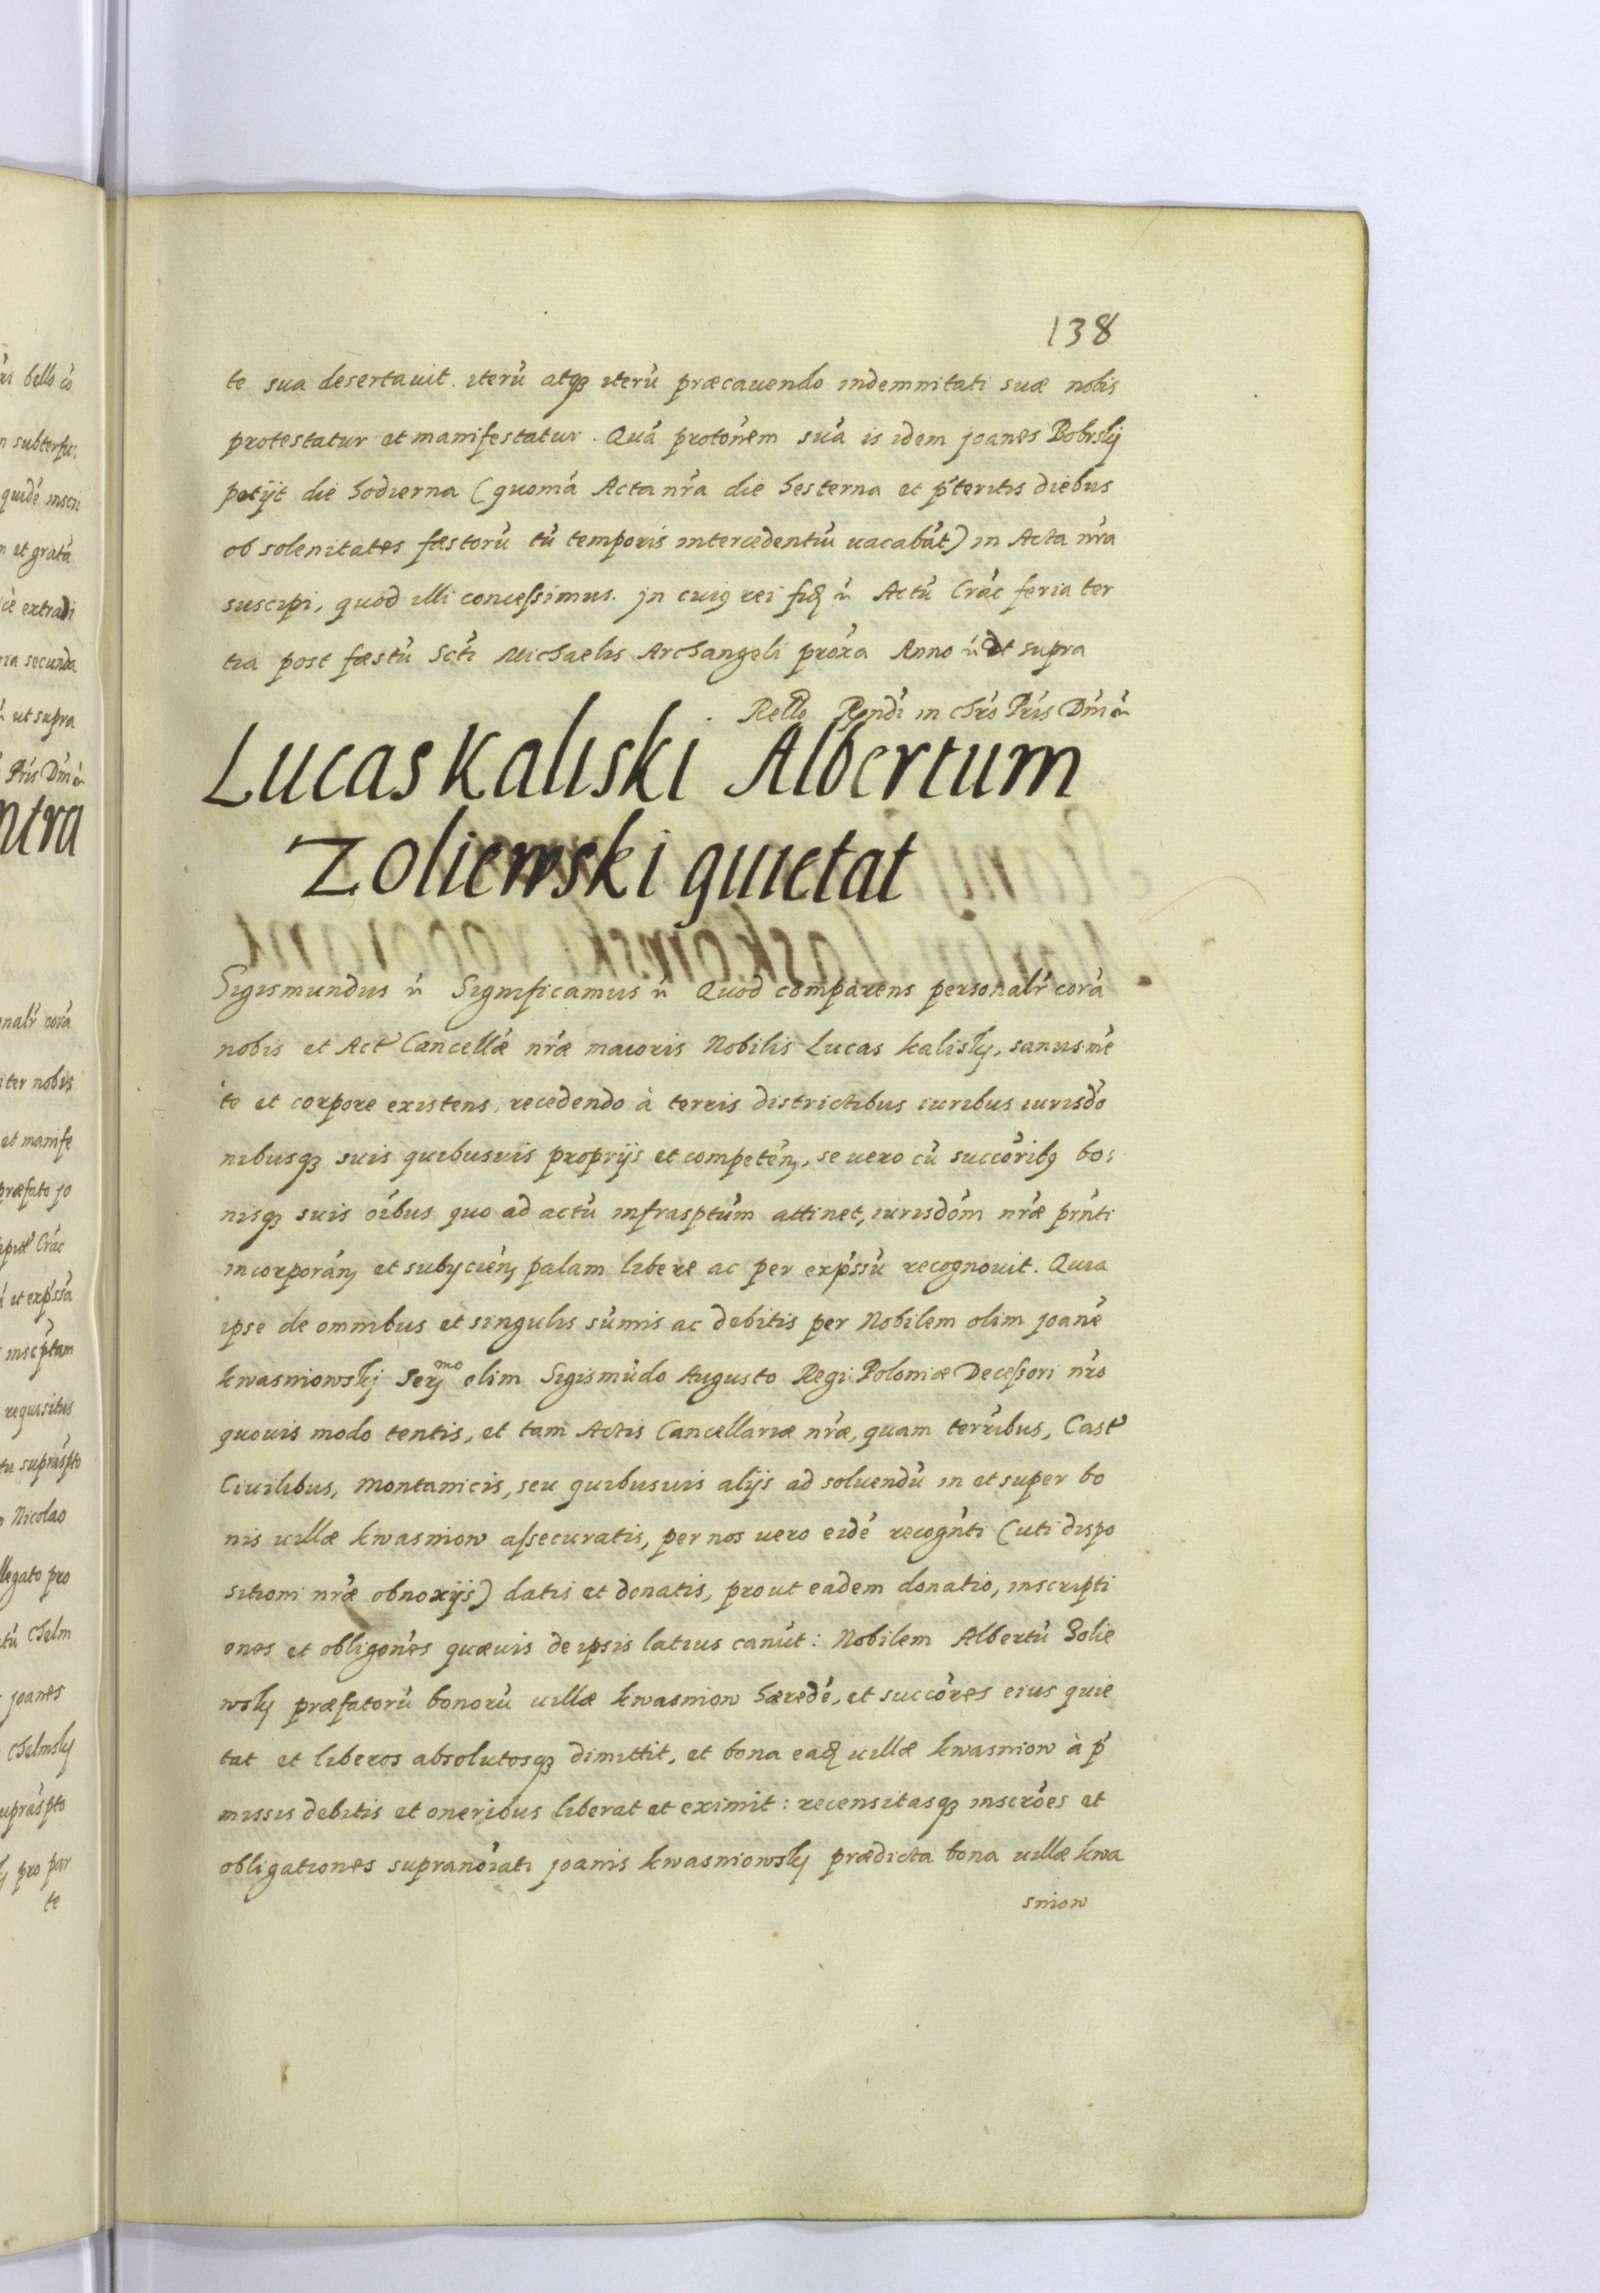 138
te sua desertavit. iterũ atq3 iterũ præcavendo indemnitati suæ nobis
protestatur et manifestatur. Quã protõnem suã is idem Joanes Bobrskÿ
petÿt die hodierna (quoniã Acta nr̃a die hesterna et p̃teritis diebus
ob solenitates fæstorũ tũ temporis intercedentiũ vacabãt) in Acta nr̃a
suscipi, quod illi concessimus. Jn cuiq rei Actũ Crac̃ feria ter
tia post fæstũ Scti Michaelis Archangeli prõxa Anno ut supra
Rello Rendi in Chro Pris Dñi
Lucas Kaliski Albertum
Zoliewski quietat
Sigismundus Significamus Quod comparens personalr̃ corã
nobis et Act Cancellæ nr̃æ maioris Nobilis Lucas Kaliskÿ, sanus mẽ
te et corpore existens, recedendo à terris districtibus iuribus iurisdõ
nibusq3 suis quibusvis proprijs et competeñ, se vero cũ succõribq bo:
nisq3 suis oĩbus quo ad actũ infrasptũm attinet, iurisdõm nr̃æ prñti
incorporañ et subÿcieñ palam libere ac per exp̃ssũ recognovit. Quia
ipse de omnibus et singulis sũmis ac debitis per Nobilem olim Joanẽ
kwasniowskj Serᵐᵒ olim Sigismũdo Augusto Regi Poloniæ Decessori nr̃o
quovis modo tentis, et tam Actis Cancellariæ nr̃æ, quam terr̃ibus, Cast
Civilibus, Montanicis, seu quibusvis alijs ad solvendũ in et super bo
nis villæ kwasniow assecuratis, per nos vero eidẽ recogñti (uti dispo
sitioni nr̃æ obnoxijs) datis et donatis, prout eadem donatio, inscripti
ones et obligoñes quævis de ipsis latius canũt: Nobilem Albertũ Zolie
wskÿ præfatorũ bonorũ villæ kwasniow hæredẽ, et succõres eius quie
tat et liberos absolutosq3 dimittit, et bona villæ kwasniow à p̃
missis debitis et oneribus liberat et eximit: recensitasq3 inscrões et
obligationes supranõiati Joanis kwasniowskÿ prædicta bona villæ kwa
sniow